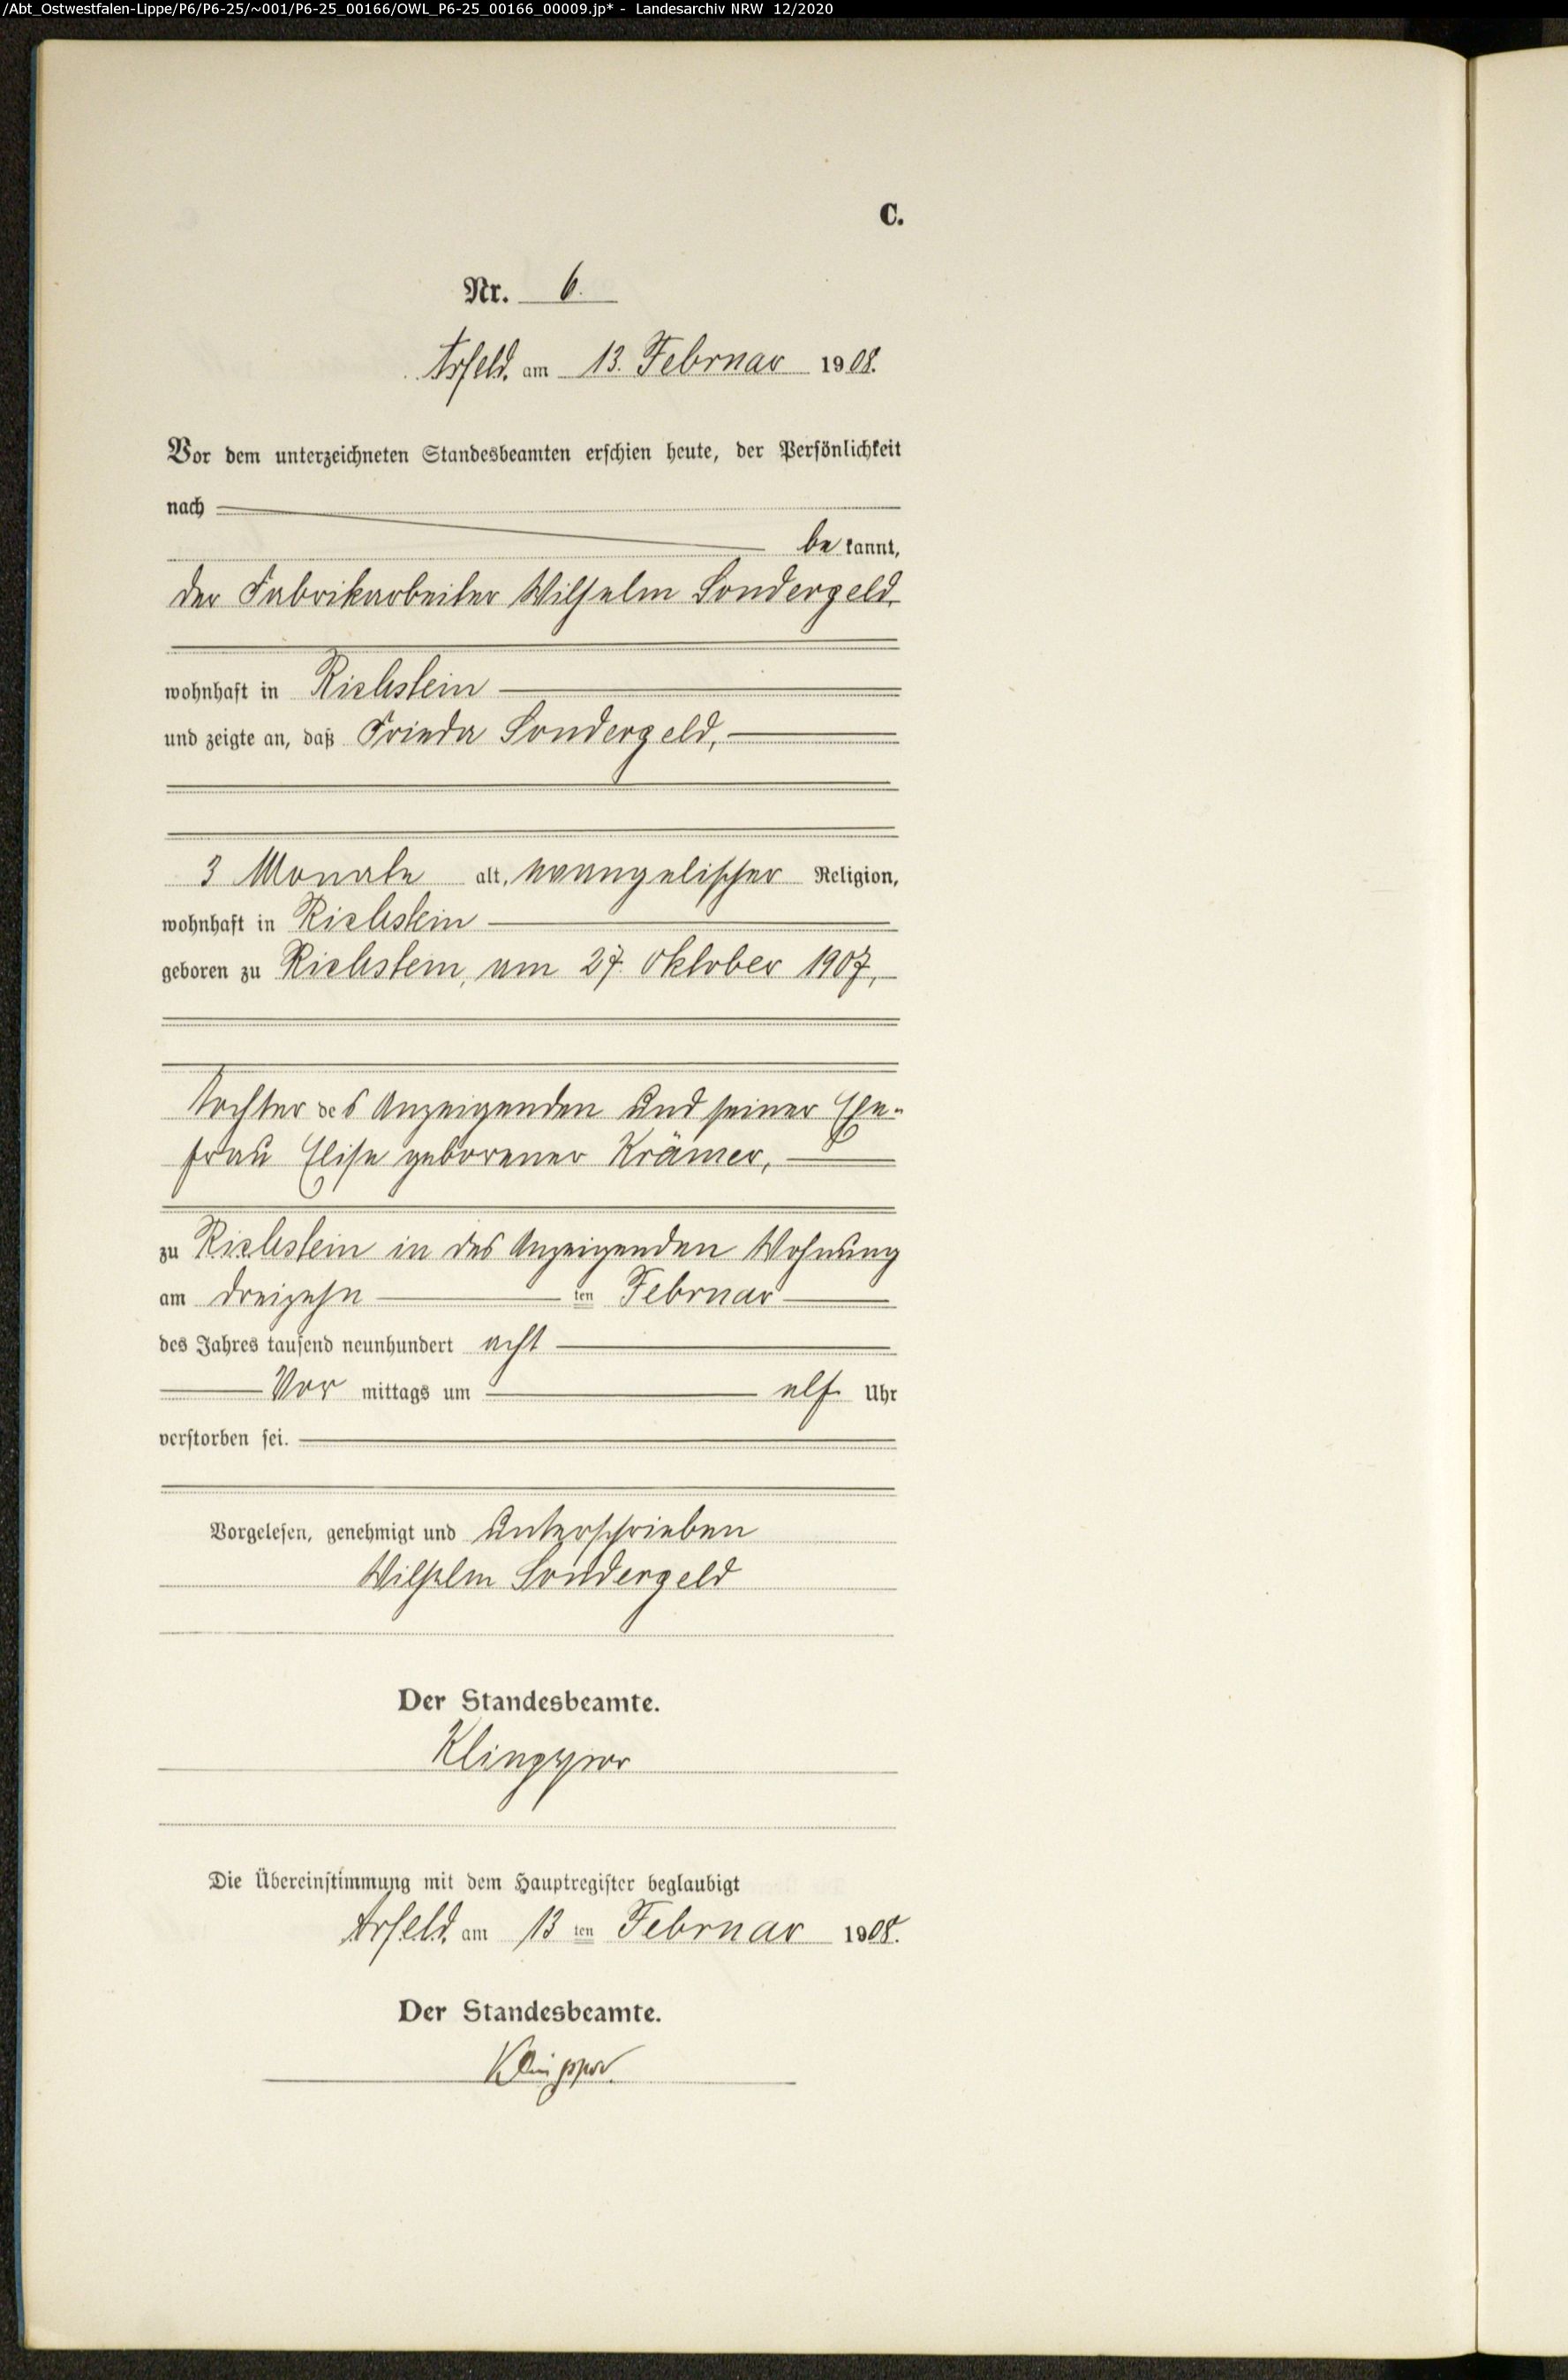 /Abt_Ostwestfalen-Lippe/P6/P6-25/~001/P6-25_00166/OWL_P6-25_00166_00009.jp* - Landesarchiv NRW 12/2020
C.
Nr. 6.
Arfeld, am 13. Februar 1908.
Vor dem unterzeichneten Standesbeamten erschien heute, der Persönlichkeit
nach
be kannt,
der Fabrikarbeiter Wilhelm Sondergeld,
wohnhaft in Richstein
und zeigte an, daß Frieda Sondergeld,
3 Monate alt, evangelischer Religion,
wohnhaft in Richstein
geboren zu Richstein, am 27. Oktober 1907,
Tochter des Anzeigenden und seiner Ehe-
frau Elise geborener Krämer,
zu Richstein in des Anzeigenden Wohnung
am dreizehn ten Februar
des Jahres tausend neunhundert acht
Vor mittags um elf Uhr
verstorben sei.
Vorgelesen, genehmigt und unterschrieben
Wilhelm Sondergeld
Der Standesbeamte.
Klingspor
Die Übereinstimmung mit dem Hauptregister beglaubigt
Arfeld, am 13 ten Februar 1908.
Der Standesbeamte.
Klingspor